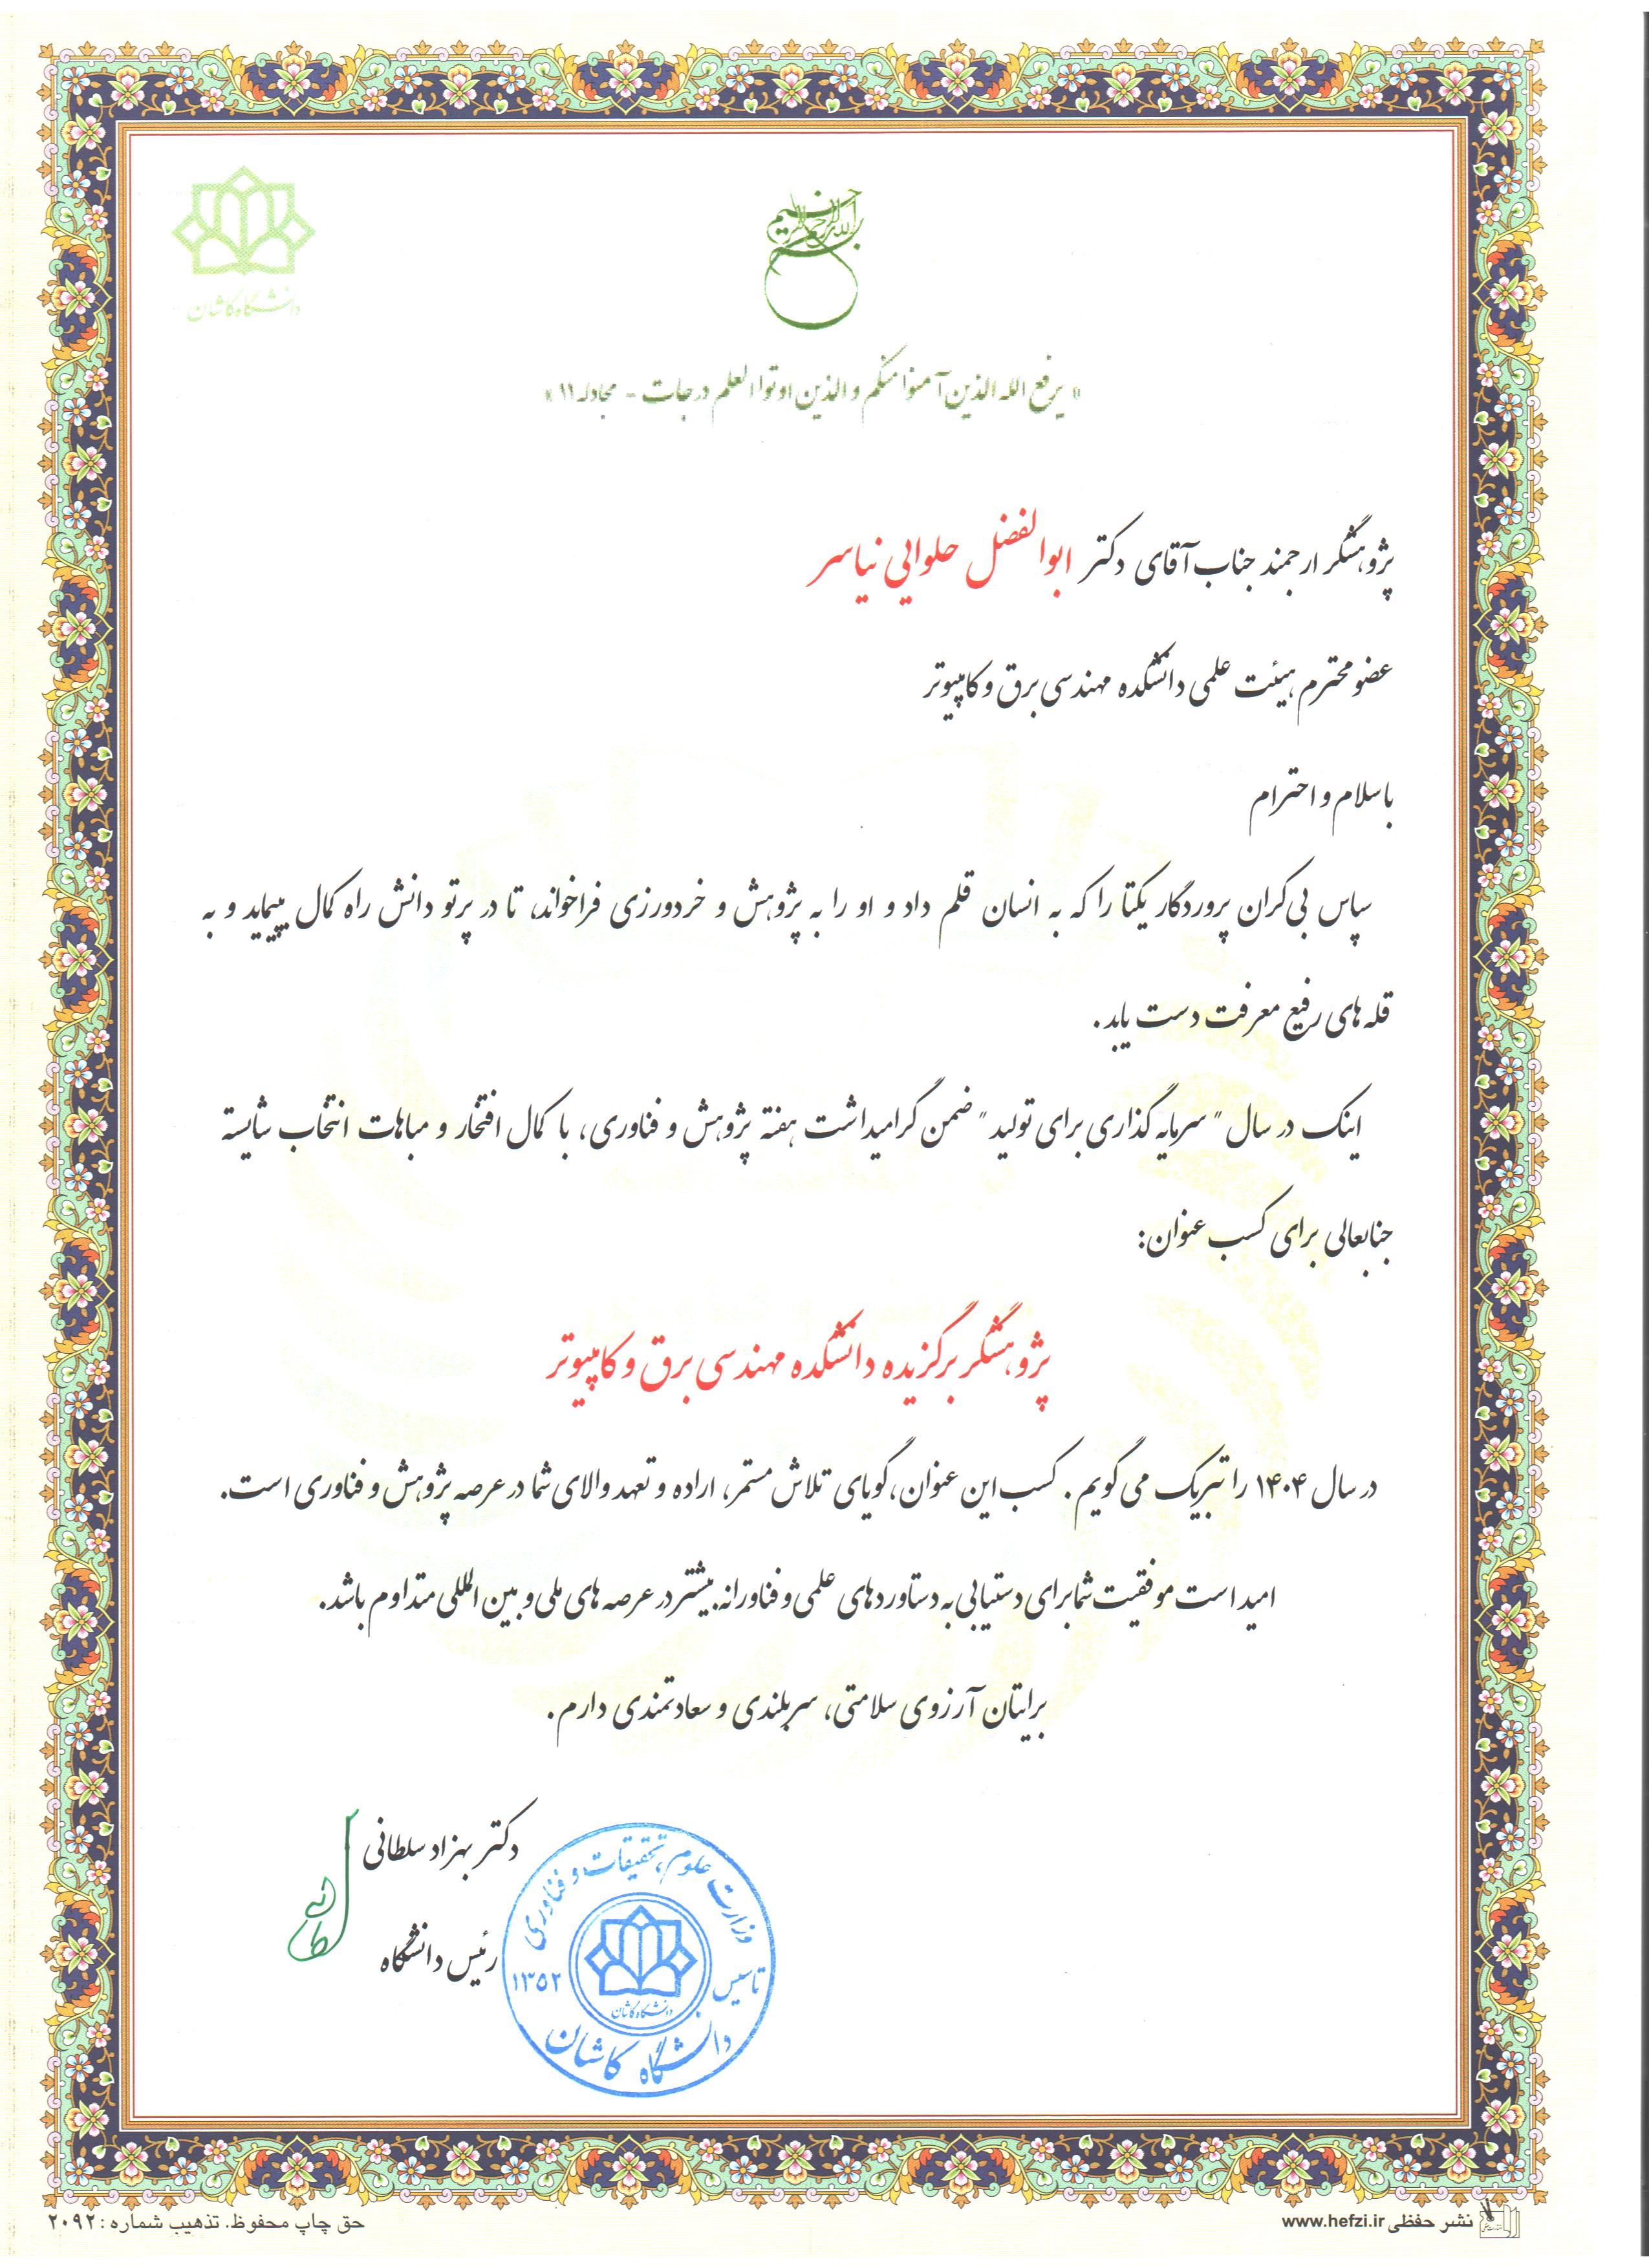 بسم الله الرحمن الرحیم
دانشگاه کاشان
« یرفع الله الذین آمنوا منکم و الذین اوتوا العلم درجات - مجادله ۱۱ »
پژوهشگر ارجمند جناب آقای دکتر ابوالفضل حلوایی نیاسر
عضو محترم هیئت علمی دانشکده مهندسی برق و کامپیوتر
با سلام و احترام
سپاس بی‌کران پروردگار یکتا را که به انسان قلم داد و او را به پژوهش و خردورزی فراخواند، تا در پرتو دانش راه کمال بپیماید و به
قله های رفیع معرفت دست یابد.
اینک در سال " سرمایه گذاری برای تولید " ضمن گرامیداشت هفته پژوهش و فناوری، با کمال افتخار و مباهات انتخاب شایسته
جنابعالی برای کسب عنوان:
پژوهشگر برگزیده دانشکده مهندسی برق و کامپیوتر
در سال ۱۴۰۴ را تبریک می گویم. کسب این عنوان، گویای تلاش مستمر، اراده و تعهد والای شما در عرصه پژوهش و فناوری است.
امید است موفقیت شما برای دستیابی به دستاوردهای علمی و فناورانه بیشتر در عرصه های ملی و بین المللی متداوم باشد.
برایتان آرزوی سلامتی، سربلندی و سعادتمندی دارم.
دکتر بهزاد سلطانی
رئیس دانشگاه
وزارت علوم، تحقیقات و فناوری
تاسیس ۱۳۵۲
دانشگاه کاشان
دانشگاه کاشان
نشر حفظی www.hefzi.ir
حق چاپ محفوظ. تذهیب شماره : ۲۰۹۲